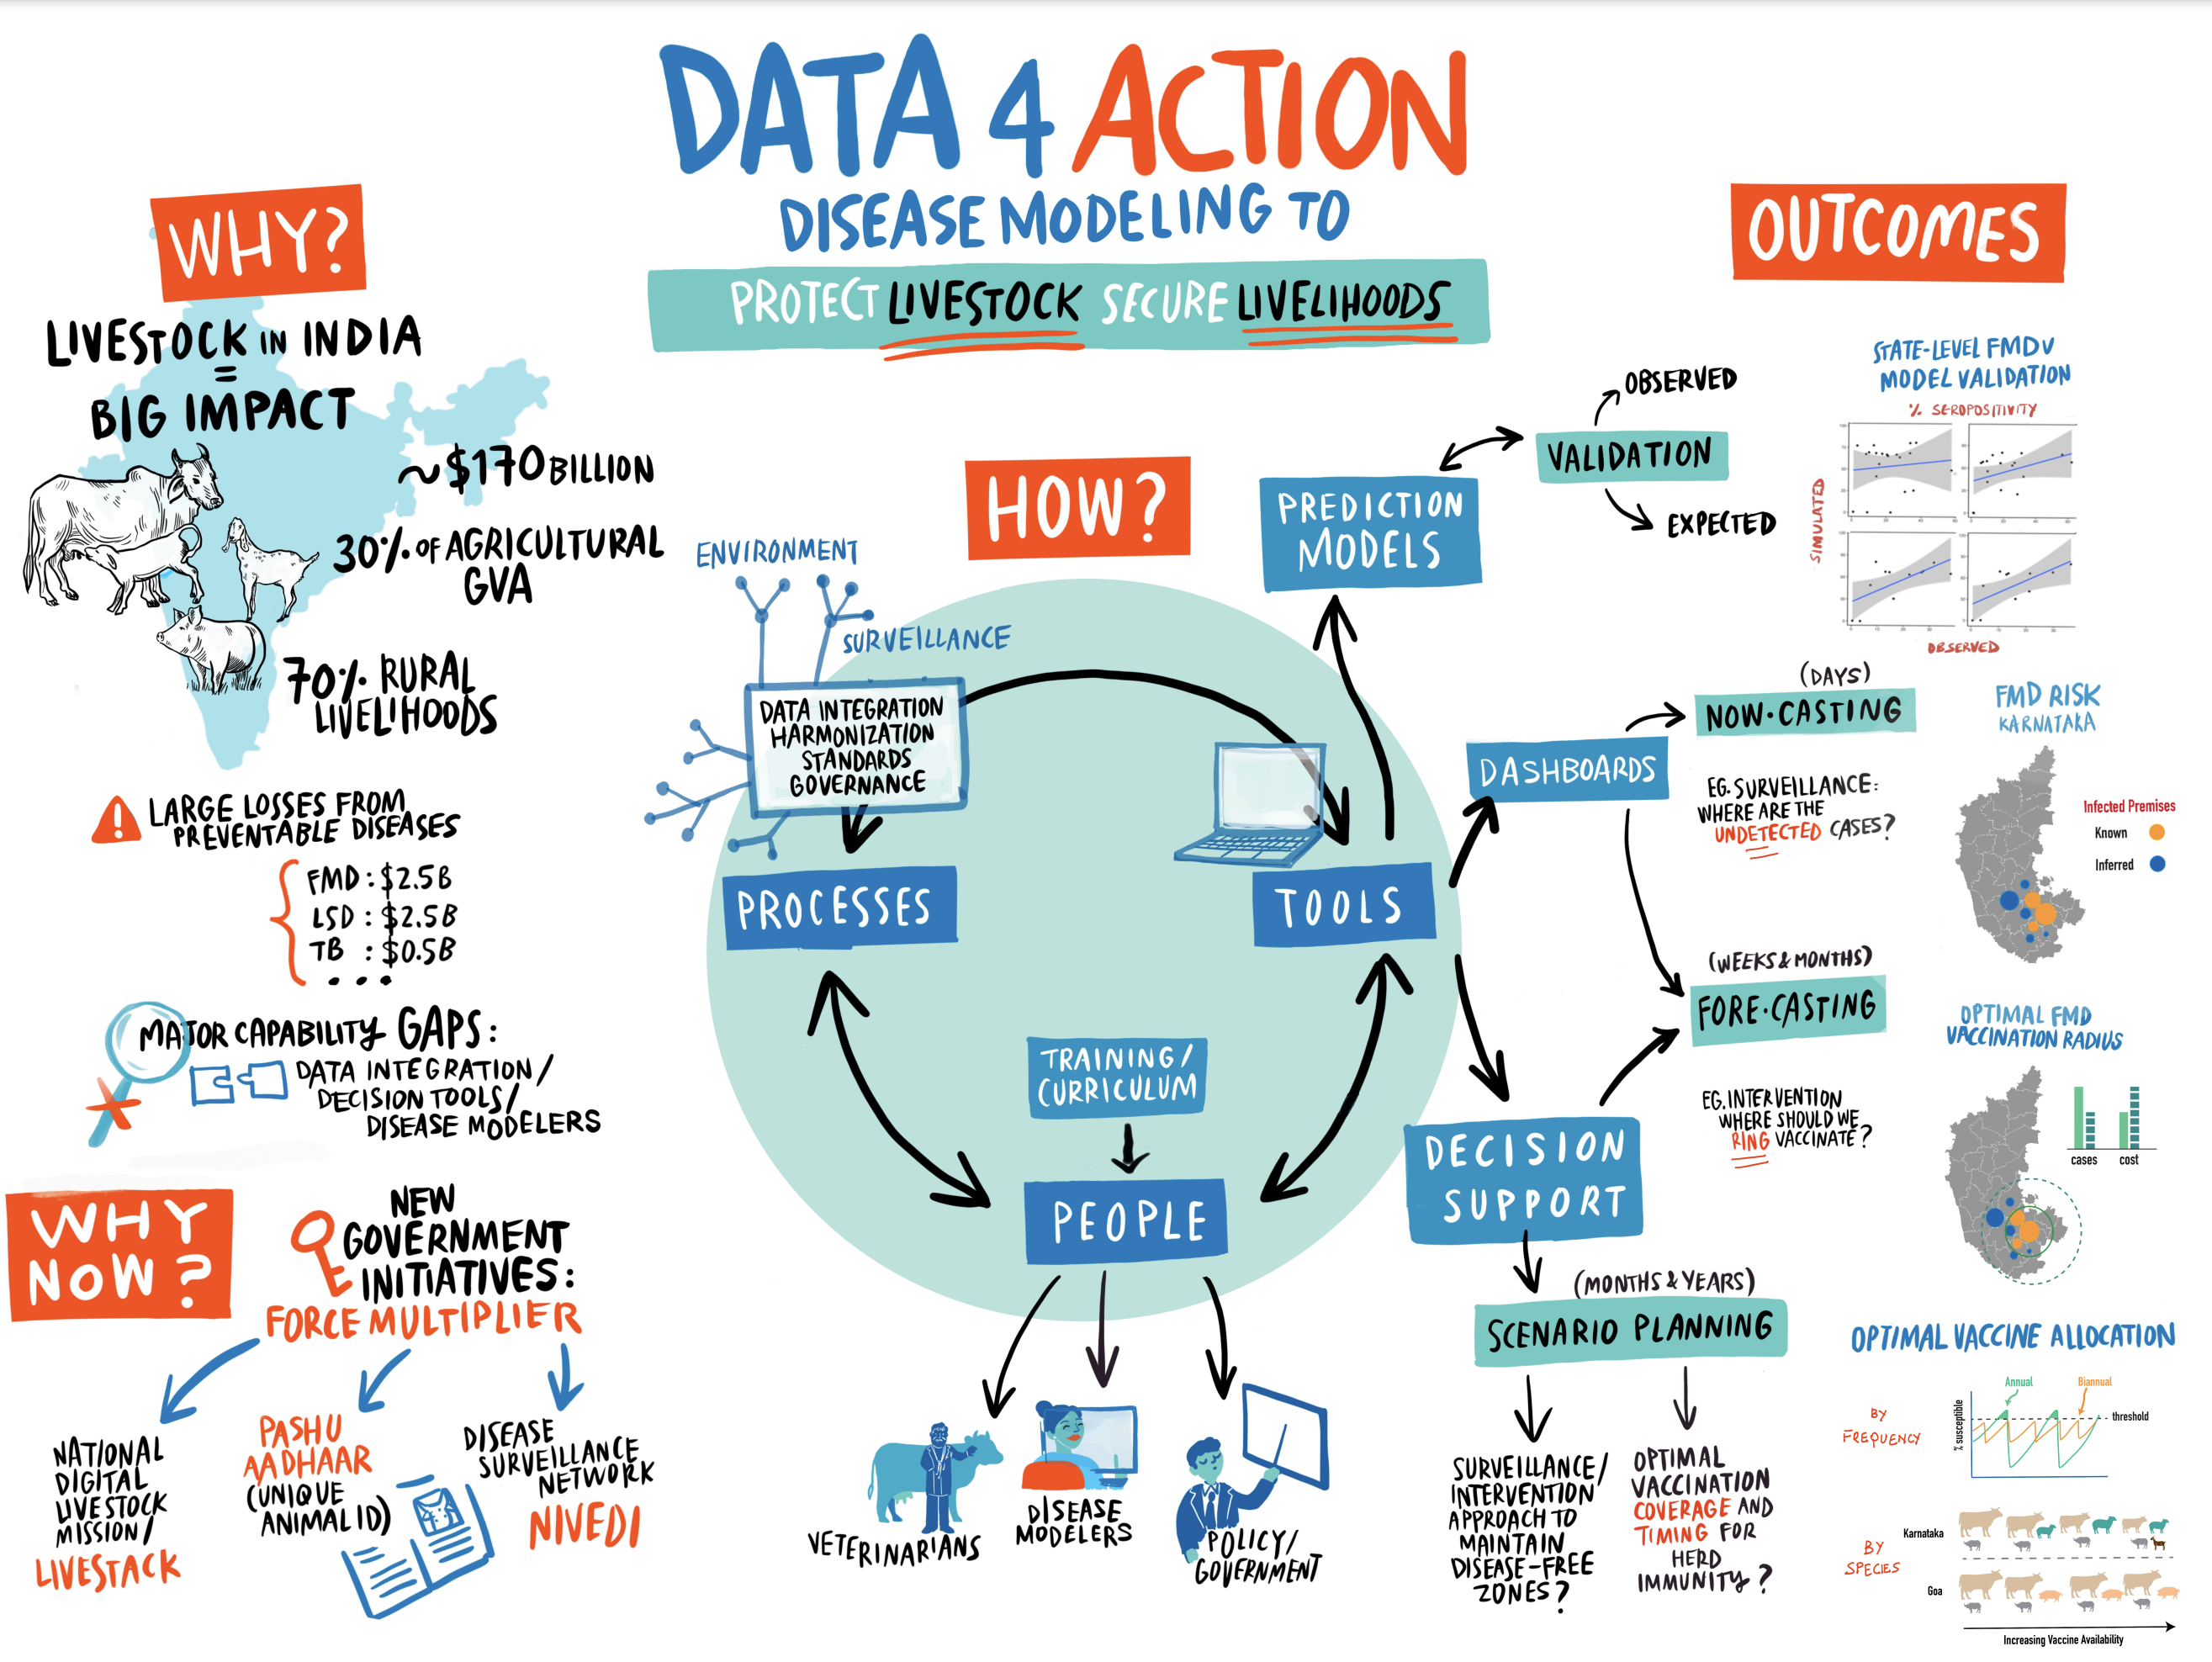 DATA 4 ACTION
DISEASE MODELING TO
PROTECT LIVESTOCK SECURE LIVELIHOODS
WHY?
LIVESTOCK IN INDIA
=
BIG IMPACT
~$170 BILLION
30% OF AGRICULTURAL
GVA
70% RURAL
LIVELIHOODS
! LARGE LOSSES FROM
PREVENTABLE DISEASES
FMD : $2.5B
LSD : $2.5B
TB : $0.5B
...
MAJOR CAPABILITY GAPS:
DATA INTEGRATION/
DECISION TOOLS/
DISEASE MODELERS
WHY
NOW?
NEW
GOVERNMENT
INITIATIVES:
FORCE MULTIPLIER
NATIONAL
DIGITAL
LIVESTOCK
MISSION/
LIVESTACK
PASHU
AADHAAR
(UNIQUE
ANIMAL ID)
DISEASE
SURVEILLANCE
NETWORK
NIVEDI
HOW?
ENVIRONMENT
SURVEILLANCE
DATA INTEGRATION
HARMONIZATION
STANDARDS
GOVERNANCE
PROCESSES
TOOLS
TRAINING/
CURRICULUM
PEOPLE
VETERINARIANS
DISEASE
MODELERS
POLICY/
GOVERNMENT
PREDICTION
MODELS
VALIDATION
OBSERVED
EXPECTED
DASHBOARDS
(DAYS)
NOW-CASTING
EG. SURVEILLANCE:
WHERE ARE THE
UNDETECTED CASES?
(WEEKS & MONTHS)
FORE-CASTING
EG. INTERVENTION
WHERE SHOULD WE
RING VACCINATE?
DECISION
SUPPORT
(MONTHS & YEARS)
SCENARIO PLANNING
SURVEILLANCE/
INTERVENTION
APPROACH TO
MAINTAIN
DISEASE-FREE
ZONES?
OPTIMAL
VACCINATION
COVERAGE AND
TIMING FOR
HERD
IMMUNITY?
OUTCOMES
STATE-LEVEL FMDV
MODEL VALIDATION
% SEROPOSITIVITY
SIMULATED
OBSERVED
FMD RISK
KARNATAKA
Infected Premises
Known
Inferred
OPTIMAL FMD
VACCINATION RADIUS
cases
cost
OPTIMAL VACCINE ALLOCATION
BY
FREQUENCY
% susceptible
Annual
Biannual
threshold
BY
SPECIES
Karnataka
Goa
Increasing Vaccine Availability